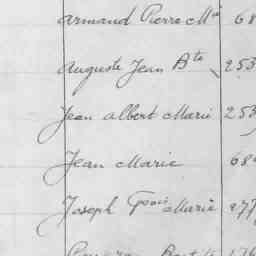 Armand Pierre Mie 68
Auguste Jean Bte 253
Jean Albert Marie 253
Jean Marie 68
Joseph Fçois Marie 277